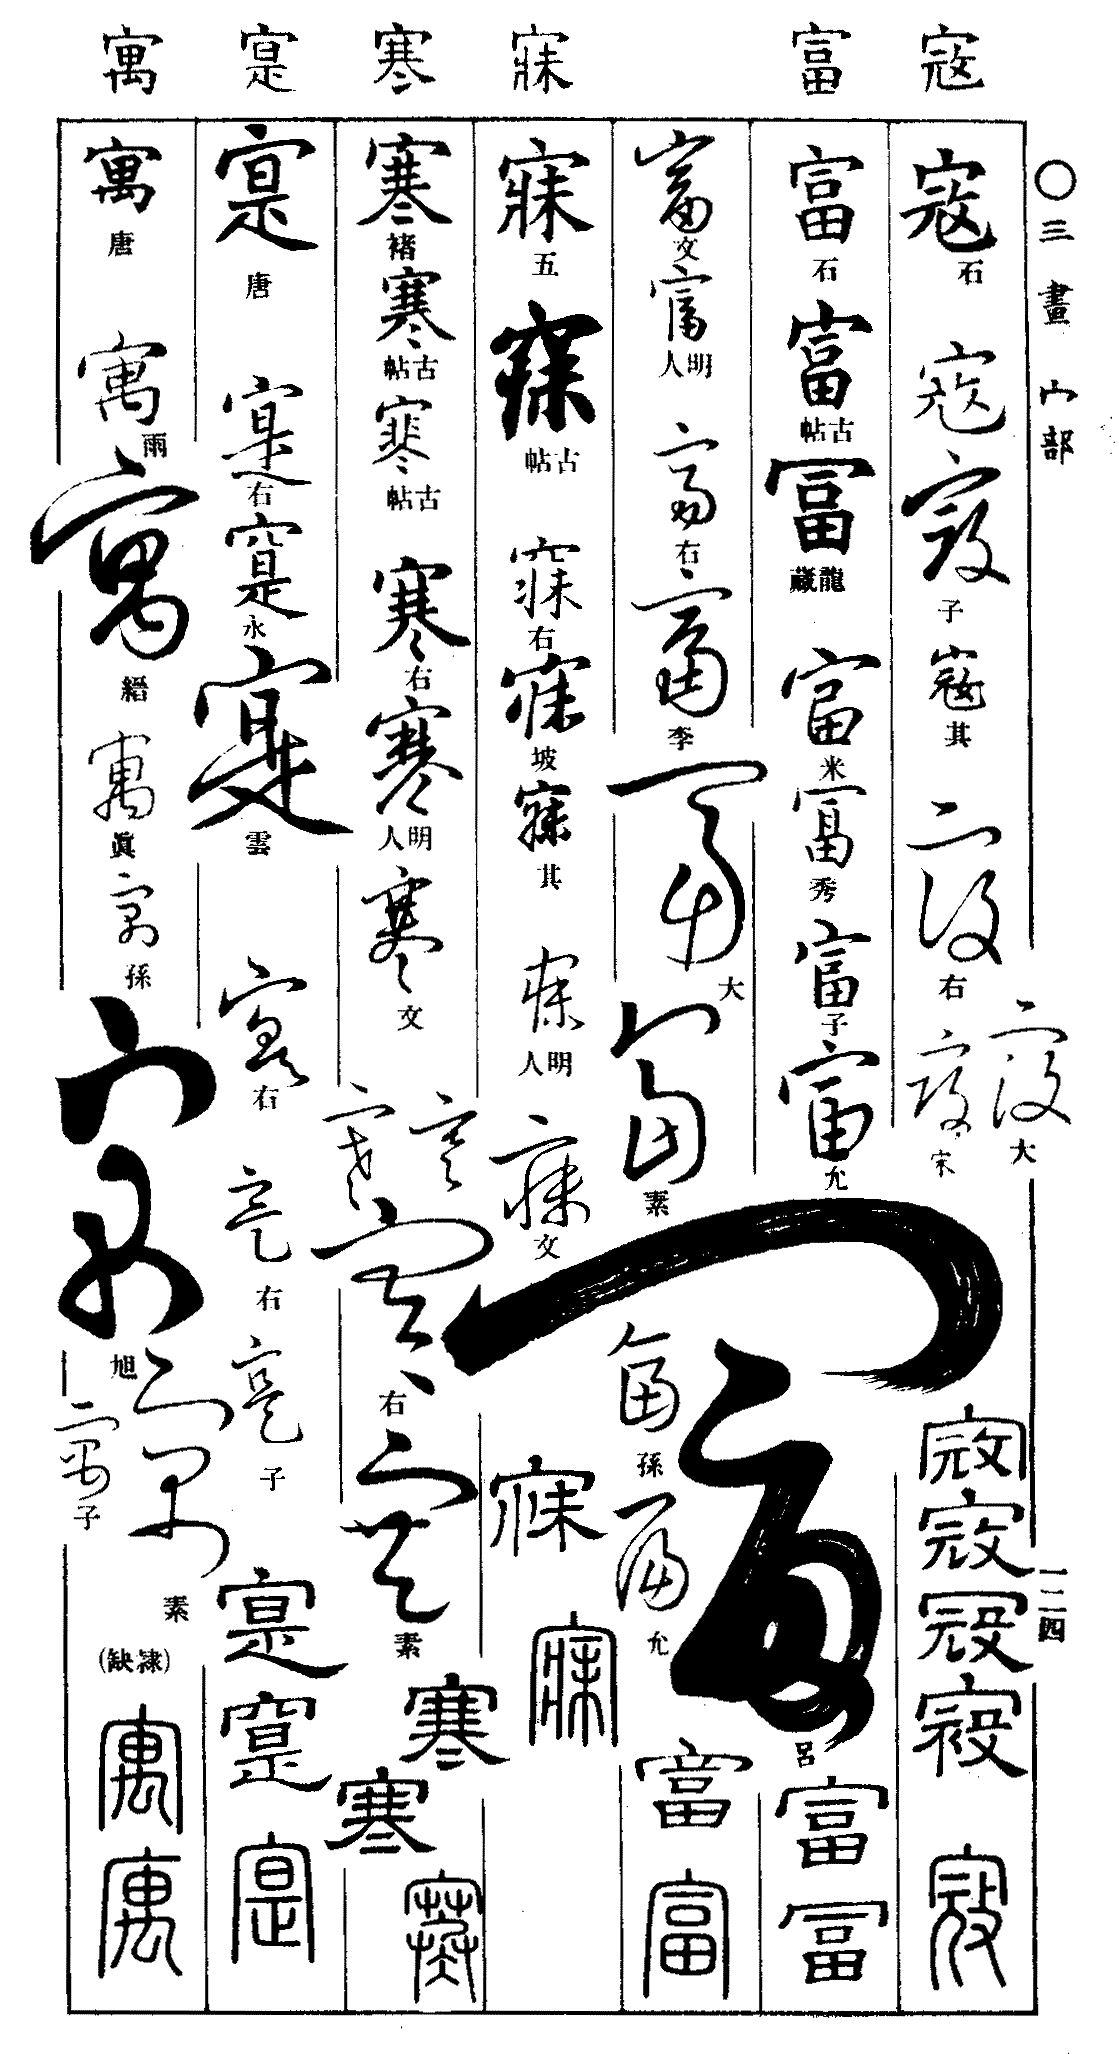 寇 富 寐 寒 寔 寓
〇三畫 宀部
一二四
寇石 寇 寇子 寇其 寇右 寇宋 寇大 寇 寇 寇 寇 寇
富石 富古帖 富龍藏 富米 富秀 富子 富允 富呂 富 富
富文 富明人 富右 富李 富大 富素 富孫 富允 富 富
寐五 寐古帖 寐右 寐坡 寐其 寐明人 寐文 寐 寐
寒褚 寒古帖 寒古帖 寒右 寒明人 寒文 寒 寒 寒右 寒素 寒 寒 寒
寔唐 寔右 寔永 寔雲 寔右 寔右 寔子 寔 寔 寔
寓唐 寓雨 寓縉 寓真 寓孫 寓旭 寓子 寓素 (隸缺) 寓 寓